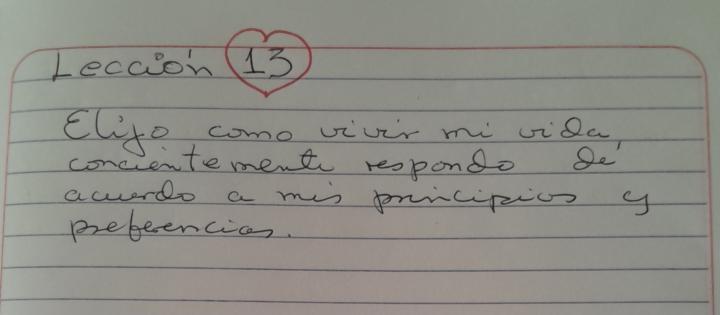 Lección 13
Elijo como vivir mi vida,
concientemente respondo dé
acuerdo a mis principios y
preferencias.